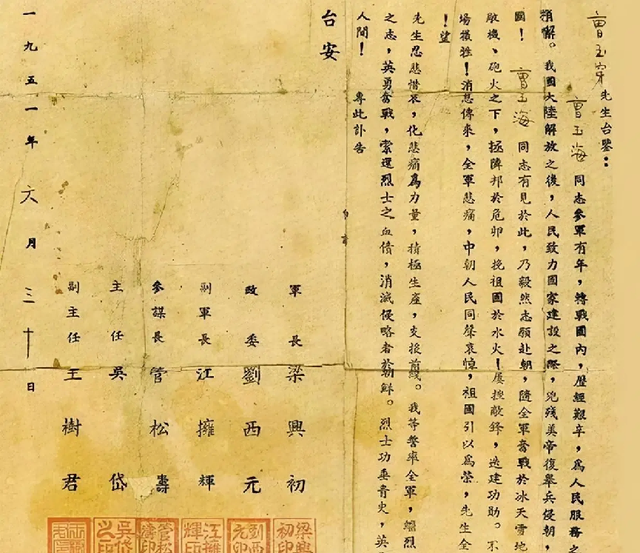 曹玉案 先生台鑒：
曹玉海 同志參軍有年，轉戰國內，歷經艱辛，為人民服務之
解。我國大陸解放之後，人民致力國家建設之際，兇殘美帝復舉兵侵朝
國！ 曹玉海 同志有見於此，乃毅然志願赴朝，隨全軍奮戰於冰天雪地
敵機、砲火之下，拯隣邦於危卵，挽祖國於水火！屢挫敵鋒，迭建功勛。不
場犧牲！消息傳來，全軍悲痛，中朝人民同聲哀悼，祖國引以為榮，先生全
！望
先生忍悲惜哀，化悲痛為力量，積極生產，支援前線。我等誓率全軍，繼烈
之志，英勇奮戰，索還烈士之血債，消滅侵略者於朝鮮。烈士功垂青史，英
人間！ 專此訃告
台安
軍長 梁興初
政委 劉西元
副軍長 江擁輝
參謀長 管松濤
主任 吳岱
副主任 王樹君
一九五一年六月三十日
梁興初印
劉西元印
江擁輝印
管松濤印
吳岱之印